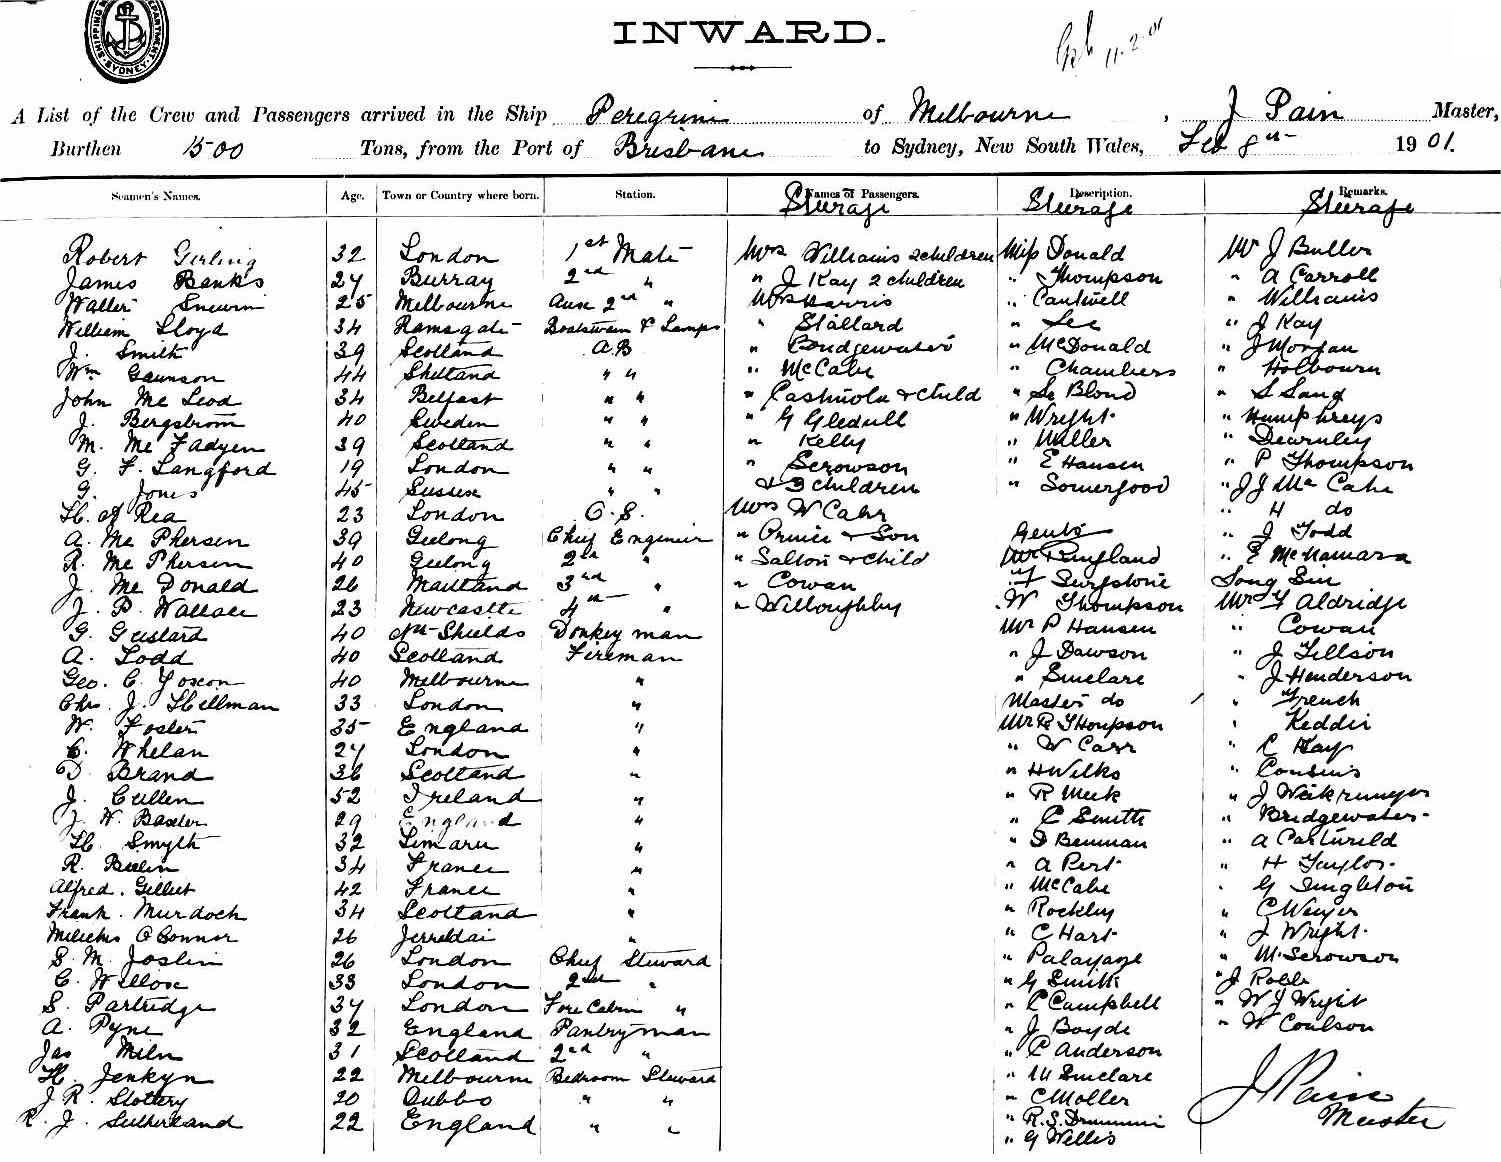 SHIPPING DEPARTMENT SYDNEY
INWARD.
11.2.01
A List of the Crew and Passengers arrived in the Ship Peregrine of Melbourne, J Pain Master,
Burthen 1500 Tons, from the Port of Brisbane to Sydney, New South Wales, Feb 8th 1901.
Seamen's Names. Age. Town or Country where born. Station. Names of Passengers. Description. Remarks.
Steerage Steerage Steerage
Robert Girling 32 London 1st Mate Mrs Williams 2 children Miss Donald Mr J Butler
James Banks 27 Burray 2nd " " J Kay 2 children " Thompson " A Carroll
Walter 25 Melbourne 2nd " Mrs Harris " Cantwell " Williams
William Lloyd 34 Ramsgate Boatswain & Lamps " Stallard " Lee " J Kay
J. Smith 39 Scotland A.B " Bridgewater " McDonald " J Morgan
Wm Gaunson 44 Shetland " " " McCabe " Chambers " Holbourn
John McLeod 34 Belfast " " " & Child " Le Blond " S Sang
J. Bergstrom 40 Sweden " " " G Gledhill " Wright " Humphreys
M. McFadyen 39 Scotland " " " Kelly " Miller " Dearnley
G. F. Langford 19 London " " " Scrowson " E Hansen " P Thompson
G. Jones 45 Sussex " " & 3 children " Somerford " J J McCabe
H. Rea 23 London O.S. Mrs W Carr " H do
A. McPhersen 39 Geelong Chief Engineer " & Son Gents " J Todd
R. McPhersen 40 Geelong 2nd " " Salton & Child Mr England " E McNamara
J. McDonald 26 Maitland 3rd " " Cowan
J. P. Wallace 23 Newcastle 4th " " Willoughby " W Thompson Mr Y Aldridge
G. Gustard 40 Nth Shields Donkeyman Mr P Hansen " Cowan
A. Todd 40 Scotland Fireman " J Dawson " J Tillson
Geo. C. Yoxon 40 Melbourne " " Sinclare " J Henderson
Chr. J. Hillman 33 London " Master do " French
W. Foster 35 England " Mr R Thompson " Keddie
C. Whelan 27 London " " W Carr " C Hay
D. Brand 36 Scotland " " H Wilks " Cousins
J. Cullen 52 Ireland " " R Meek " J
J. W. Baxter 29 England " " C Smith " Bridgewater
H. Smyth 32 Timaru " " D Benman " A
R. 34 France " " A Pert " H Taylor
Alfred. Gillet 42 France " " McCabe " G Singleton
Frank. Murdoch 34 Scotland " " Rockley " C Weyer
O'Connor 26 " " C Hart " J Wright
S. M. Joslin 26 London Chief Steward " Palayage " M. Scrowson
C. Willox 33 London 2nd " " G Smith " J Robb
S. Partridge 37 London Fore Cabin " " C Campbell " W J Wright
A. Pyne 32 England Pantryman " J Boyde " W Coulson
Jas Miln 31 Scotland 2nd " " C Anderson
H. Jenkyn 22 Melbourne Bedroom Steward " M Sinclare
J. R. Slottery 20 Dubbo " " " C Moller
R. J. Sutherland 22 England " " " R. S. Drummin
" G Willis
J Pain
Master